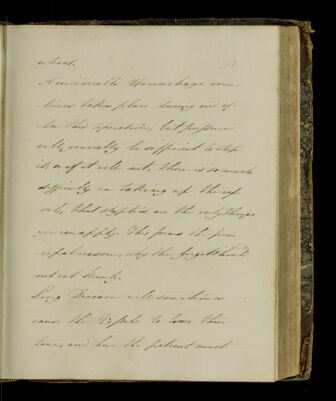 chest.
A considerable Hemorrhage some-
times takes place during and af-
ter this operation, but pressure
will generally be sufficient to stop
it; or if it will not, there is so much
difficulty in taking up the ves-
sels, that styptics are the only things
you can apply. This forms the prin-
cipal reason, why the
not cut
Long Disease will sometimes
cause the Vessels to lose their
tone, and here the patient must